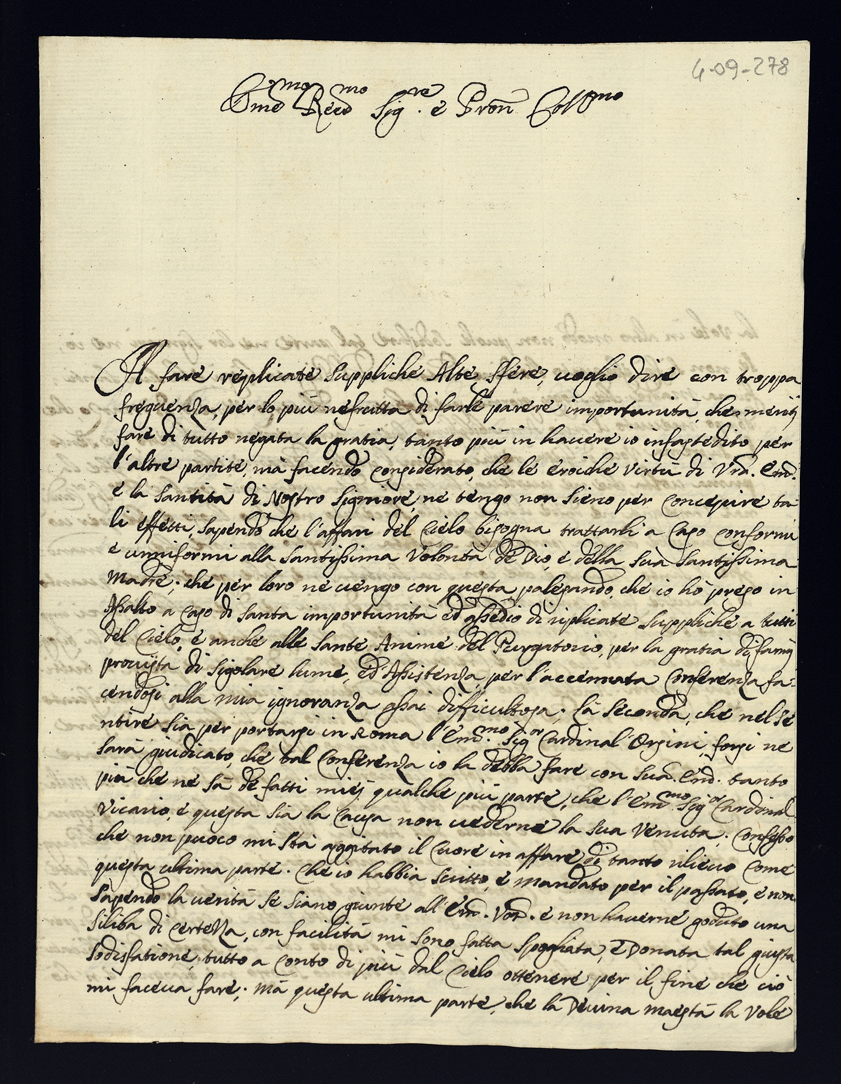 4-09-278
Em.mo Re.mo Sig.re e Pron Col.mo
Il fare replicate suppliche Alte Sfere, uoglio dire con troppa
frequenza, per lo più nefrutta di farle parere importunità, che meriti
fare di tutto negata la gratia, tanto più in hauere io infastedito per
l'altre partite, mà facendo considerato, che le eroiche Virtù di Vrã. Emã.
e la Santità di Nostro Signiore, ne tengo non sieno per concepire ta-
li effetti, sapendo che l'affari del Cielo bisogna trattarli a Caso conformi
e unniformi alla Santissima Volontà de Dio, e della Sua Santissima
Madre; che per loro ne uengo con questa palesando, che io hò preso in
Assalto a Caso di Santa importunità ed assedio di riplicate suppliche a tutti
del Cielo, e anche alle Sante Anime del Purgatorio, per la gratia di farmi
prouista di Sigolare lume, ed'Assistenza per l'accennata Conferenza fa-
cendosi alla mia ignoranza assai difficultosa; La Seconda, che nel se
ntire sia per portarsi in Roma l'Em.mo Sig.or Cardinal Orsini, forsi ne
sarà giudicato, che tal Conferenza io la debba fare con Sua Emã. tanto
più che ne sà de fatti miei qualche più parte, che l'Em.mo Sig.or Cardinal
Vicario, e questa sia la Causa non uederne la sua Venuta; Confesso
che non puoco mi stà aggitato il Cuore in affare di tanto rilieuo Come
questa ultima parte. Che io habbia scritto, e mandato per il passato, e non
Sapendo la uerità se siano giunte all'Emã. Vrã. e non hauerne goduto una
siliba di certezza, con facilità mi sono fatta spogliata, e Donata tal giusta
sodisfatione, tutto a conto di più dal Cielo ottenere per il fine che ciò
mi faceua fare; mà questa ultima parte, che la Diuina maestà la Vole